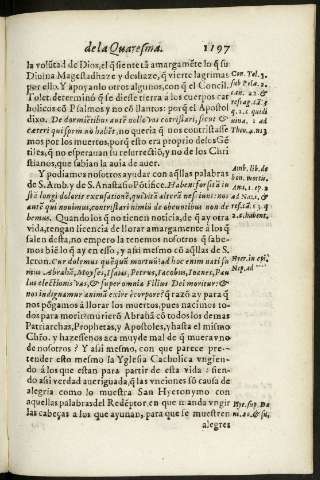 de la Quaresma. 1197
la volũtad de Dios, el q̃ siente tã amargamẽte lo q̃ su
Diuina Magestad haze y deshaze, q̃ vierte lagrimas
por ello. Y apoyanlo otros algunos, con q̃ el Concil.
Tolet. determinó q̃ se dieste tierra a los cuerpos cat
holicos cõ Psalmos y no cõ llantos: por q̃ el Apostol
dixo. De dormientibus autẽ nollo vos cõtristari, sicut &
cæteri qui spem nõ habẽt, no queria q̃ nos contristasse
mos por los muertos, porq̃ esto era proprio de los Gẽ
tiles, q̃ no esperauan su resurrectiõ, y no de los Chri
stianos, que sabian la auia de auer.
Y podiamos nosotros ayudar con aq̃llas palabras
de S. Amb. y de S. Anastasio Põtifice.
longi doloris excusationẽ,
autẽ qui nouimus, contristari nimis de obeuntibus non de
bemus. Quando los q̃ no tienen noticia, de q̃ ay otra
vida, tengan licencia de llorar amargamente à los q̃
salen desta, no empero la tenemos nosotros q̃ sabe-
mos biẽ lo q̃ ay en esso, y asi mesmo cõ aq̃llas de S.
Ieron. Cur dolemus quẽquã mortuũ: ad hoc enim nati su
mus Abrahã, Moyses, Isaias, Petrus, Iacobus, Ioanes, Pau
lus electionis vas, & super omnia Filius Dei moritur: &
nos indignamur animã exire è corpore? q̃ razõ ay para q̃
nos põgamos à llorar los muertos, pues nacimos to-
dos para morir: murierõ Abrahã cõ todos los demas
Patriarchas, Prophetas, y Apostoles, y hasta el mismo
Chr̃o. y hazesenos aca muy de mal de q̃ muera vno
de nosotros? Y asi mesmo, con que parece pre-
tender esto mesmo la Yglesia Catholica vngien-
do à los que estan para partir de esta vida: sien-
do asi verdad aueriguada, q̃ las vnciones sõ causa de
alegria como lo muestra San Hyeronymo con
aquellas palabras del Redẽptor, en que manda vngir
las cabeças a los que ayunan, para que se muestren
alegres
Con. Tol. 3.
Amb. lib. de
Hier. in epi.
Nep. ad